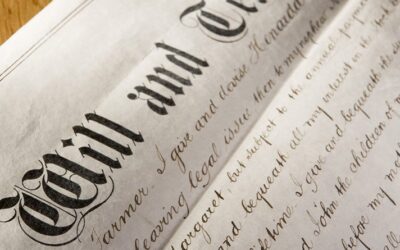 Will and Te
Farmer. I give and devise
leaving legal issue then to my
Margaret but subject to the annual
and bequeath all my interest in the
I give and bequeath the
and John the children of
my